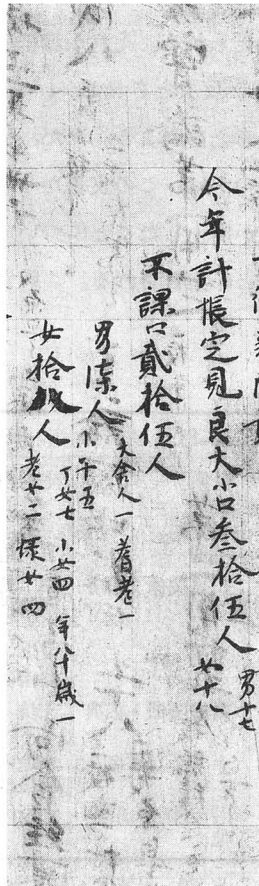 今年計帳定見良大小口叁拾伍人
男十七
女十八
不課口貳拾伍人
男漆人
大舎人一 耆老一
小子五
女拾捌人
丁女七 小女四 年八十歳一
老女二 緑女四